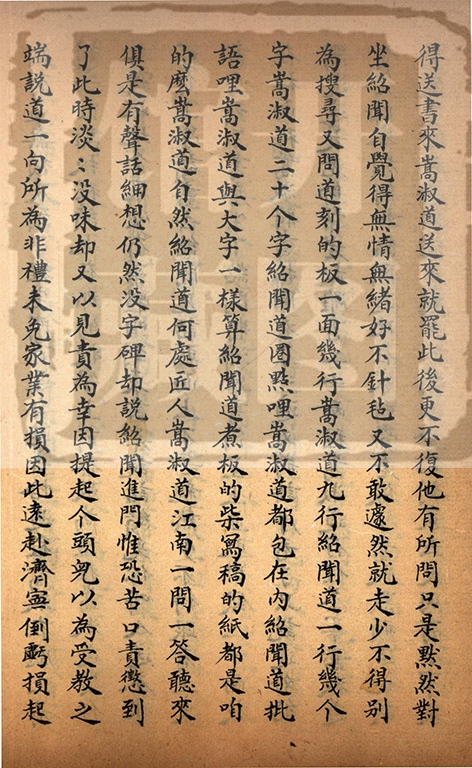 得送書來嵩淑道送來就罷此後更不復他有所問只是黙然對
坐紹聞自覺得無情無緒好不針毡又不敢遽然就走少不得别
為搜尋又問道刻的板一面幾行嵩淑道九行紹聞道一行幾个
字嵩淑道二十个字紹聞道圏㸃哩嵩淑道都包在内紹聞道批
語哩嵩淑道與大字一樣算紹聞道煮板的柴寫稿的紙都是咱
的麽嵩淑道自然紹聞道何處匠人嵩淑道江南一問一答聽來
俱是有聲話細想仍然没字碑却説紹聞進門惟恐苦口責懲到
了此時淡:没味却又以見責為幸因提起个頭皃以為受教之
端説道一向所為非禮未免家業有損因此遠赴濟寧倒虧損起